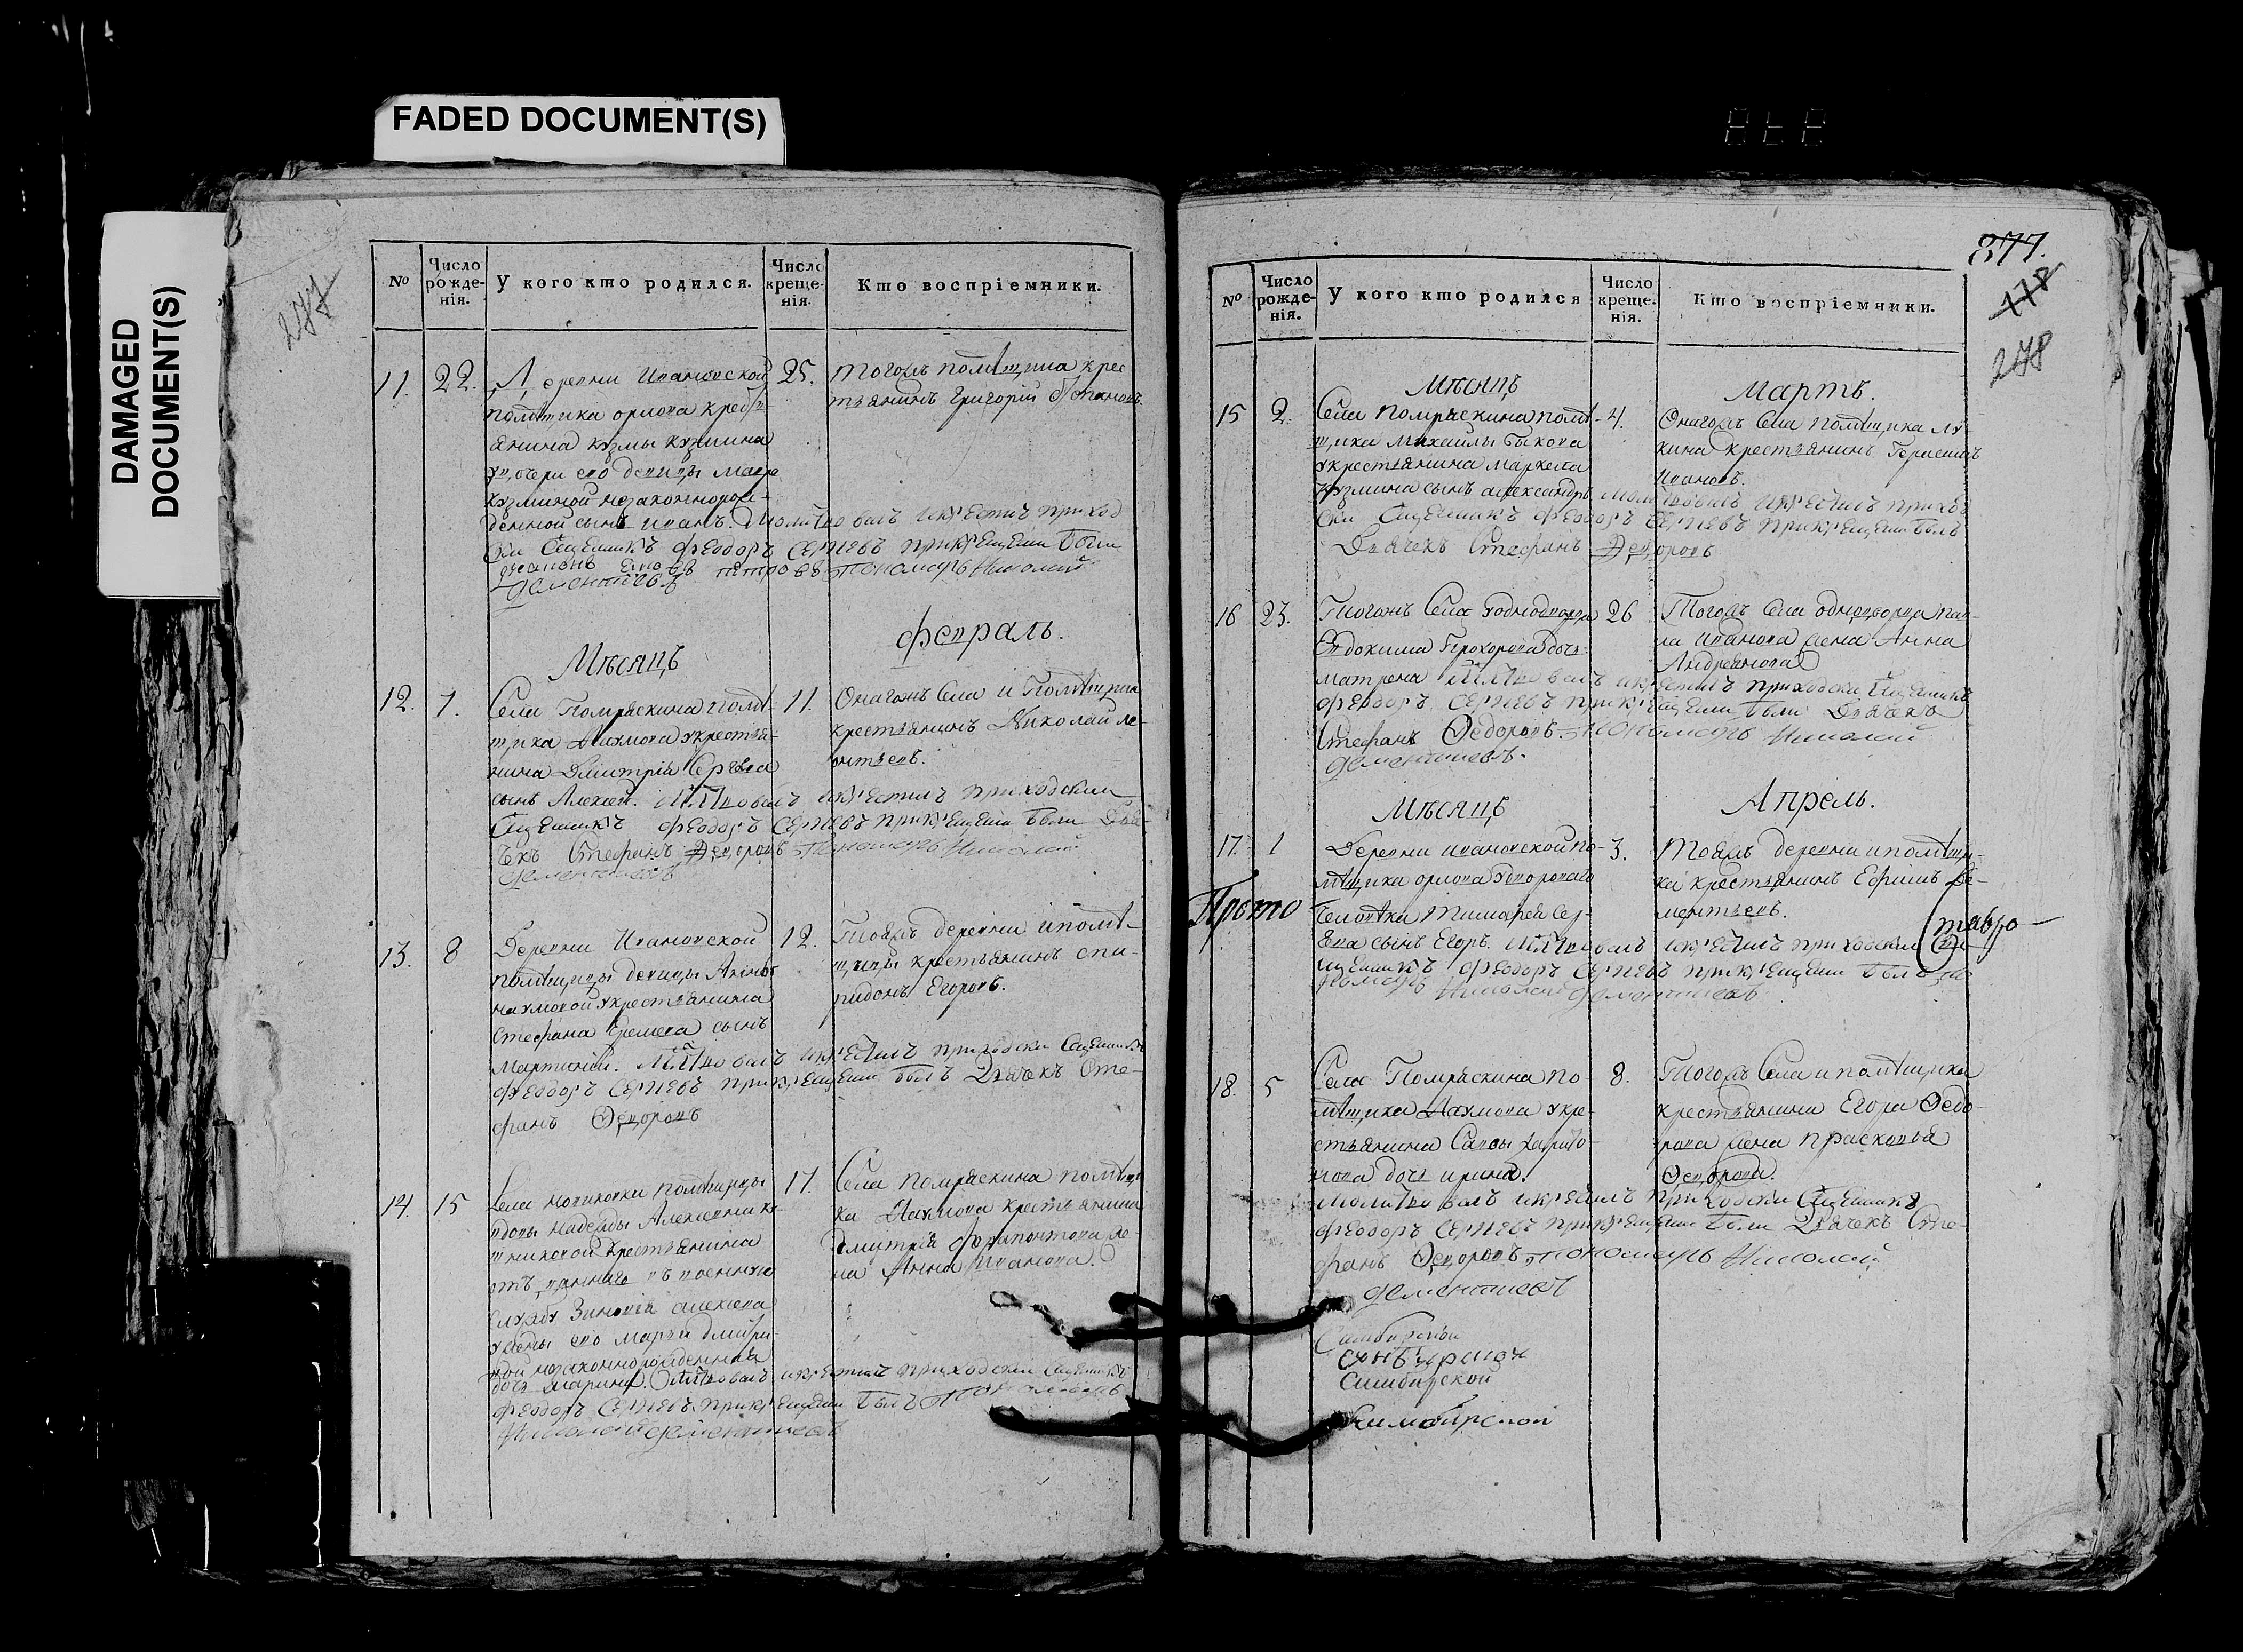 FADED DOCUMENT(S)
DAMAGED
DOCUMENT(S)
277
№
Число
рожде-
нія.
У кого кто родился.
Число
креще-
нія.
Кто воспріемники.
11.
22.
Деревни Ивановской
помѣщика орлова крестья-
янина кузмы кузмина
у дочери его девицы
кузминой незаконнорож-
денной сынъ иванъ. Молитвовалъ и крестилъ приход
ски Священникъ Феодоръ Сергіевъ при крещении были
пономарь Николай
дементиевъ
25.
тогожъ помѣщика крес
тьянинъ Григорій
Мѣсяцъ
февраль.
12.
7.
Села Помряскина помѣ-
щика Наумова у крестья-
нина Дмитрія Сергѣева
сынъ Алексей. Мл҃твовалъ и крестилъ приходскии
Священникъ Феодоръ Сергіевъ при крещении были Дья-
чекъ Стефанъ Ѳедоровъ Пономарь Николай
дементиевъ
11.
Онагожъ Села и Помѣщика
крестьянинъ Николай ле-
онтьевъ.
13.
8
Деревни Ивановской
помѣщицы девицы Анны
наумовой у крестьянина
Стефана Еремеева сынъ
Мл҃твовалъ и крестилъ приходски Священникъ
Феодоръ Сергіевъ при крещении былъ Дьячекъ Сте-
фанъ Ѳедоровъ
12.
Тояжъ деревни и помѣ-
щицы крестьянинъ спи-
ридонъ Егоровъ.
14.
15
Села помѣщицы
вдовы надежды Алексевны
крестьянина
отъданнаго въ военную
службу Зиновія алексева
у жены его Марьи дмитри-
вой незаконнорожденная
дочь Марина. Мл҃твовалъ и крестилъ приходскии Священникъ
Феодоръ Сергіевъ при крещении былъ Пономарь
Николай дементиевъ
17.
Села помряскина помѣщи
ка Наумова крестьянина
дмитрія ферапонтова же-
на Анна Иванова.
877.
178
278
№
Число
рожде-
нія.
У кого кто родился
Число
креще-
нія.
Кто воспріемники.
Мѣсяцъ
Мартъ.
15
2.
Села помряскина помѣ-
щика Михайлы быкова
у крестьянина маркела
кузмина сынъ александръ молитвовалъ и крестилъ приход
ски Священникъ Феодоръ Сергіевъ при крещении былъ
Дьячекъ Стефанъ Ѳедоровъ
4.
Онагожъ Села помѣщика лу
кина крестьянинъ Герасимъ
Ивановъ.
16
23.
Тогожъ Села у однодворца
Евдокима Прохорова дочь
матрена Мл҃твовалъ и крестилъ приходски Священникъ
Феодоръ Сергіевъ при крещении были Дьячекъ
Стефанъ Ѳедоровъ Пономарь Николай
дементиевъ.
26
Тогожъ Села однодворца пав-
ла Иванова жена Анна
Андреянова
Мѣсяцъ
Апрель.
17.
1
Деревни ивановской по-
мѣщика орлова у двороваго
человѣка Тимофея Сер-
геева сынъ Егоръ. Мл҃твовалъ и крестилъ приходскии Свя-
щенникъ Феодоръ Сергіевъ при крещении былъ по
номарь Николай дементиевъ
3.
Тояжъ деревни и помѣщи-
ка крестьянинъ Ефимъ де-
ментьевъ.
Прото
18.
5
Села Помряскина по-
мѣщика Наумова у кре-
стьянина Савы харито-
нова дочь ирина.
Молитвовалъ и крестилъ приходски Священникъ
Феодоръ Сергіевъ при крещении были Дьячекъ Сте-
фанъ Ѳедоровъ Пономарь Николай
дементиевъ
8.
Тогожъ Села и помѣщика
крестьянина Егора Ѳедо-
рова жена прасковья
Ѳедорова.
Симбирской
Симбирской